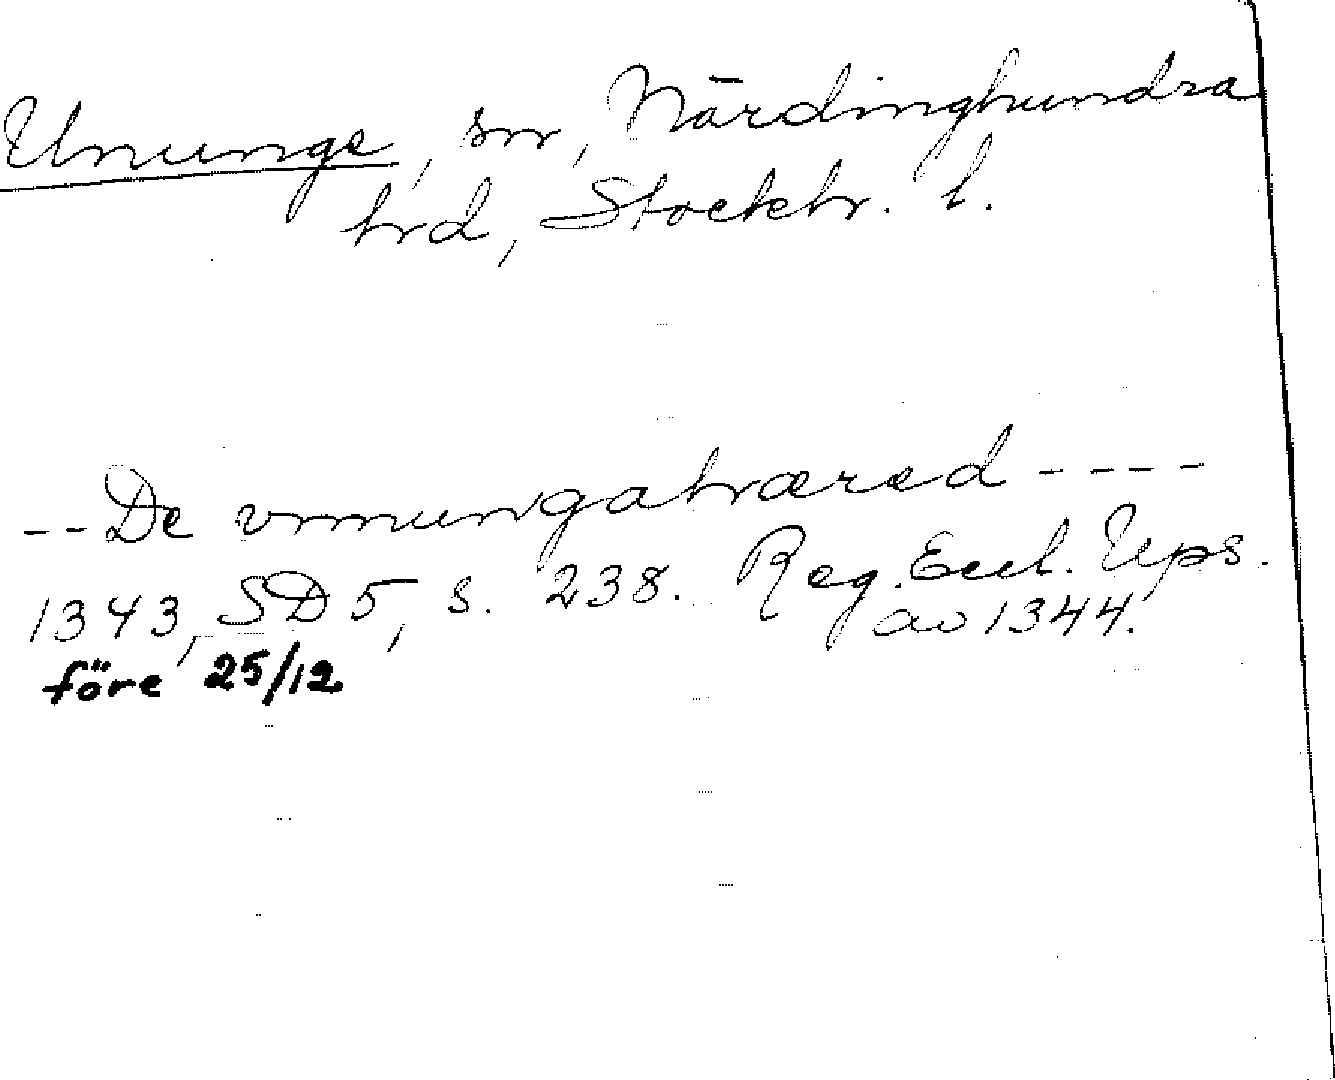 Ununge, sn, Närdinghundra
hrd, Stockh. l.
-- De vnnungahæræd ----
1343, SD 5, s. 238. Reg. Eccl. Ups.
av 1344.
före 25/12